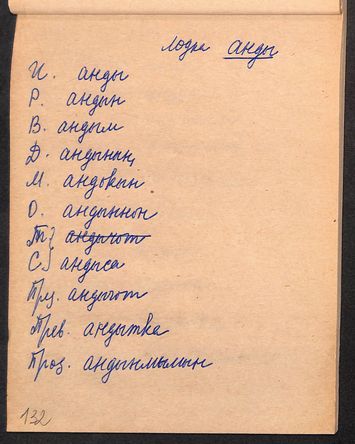 лодка анды
И. анды
Р. андын
В. андым
Д. андынын,
М. андовын
О. андыннон
андычот
С} андыса
Прд. андычот
Прев. андытка
Проз. андынмымын
132